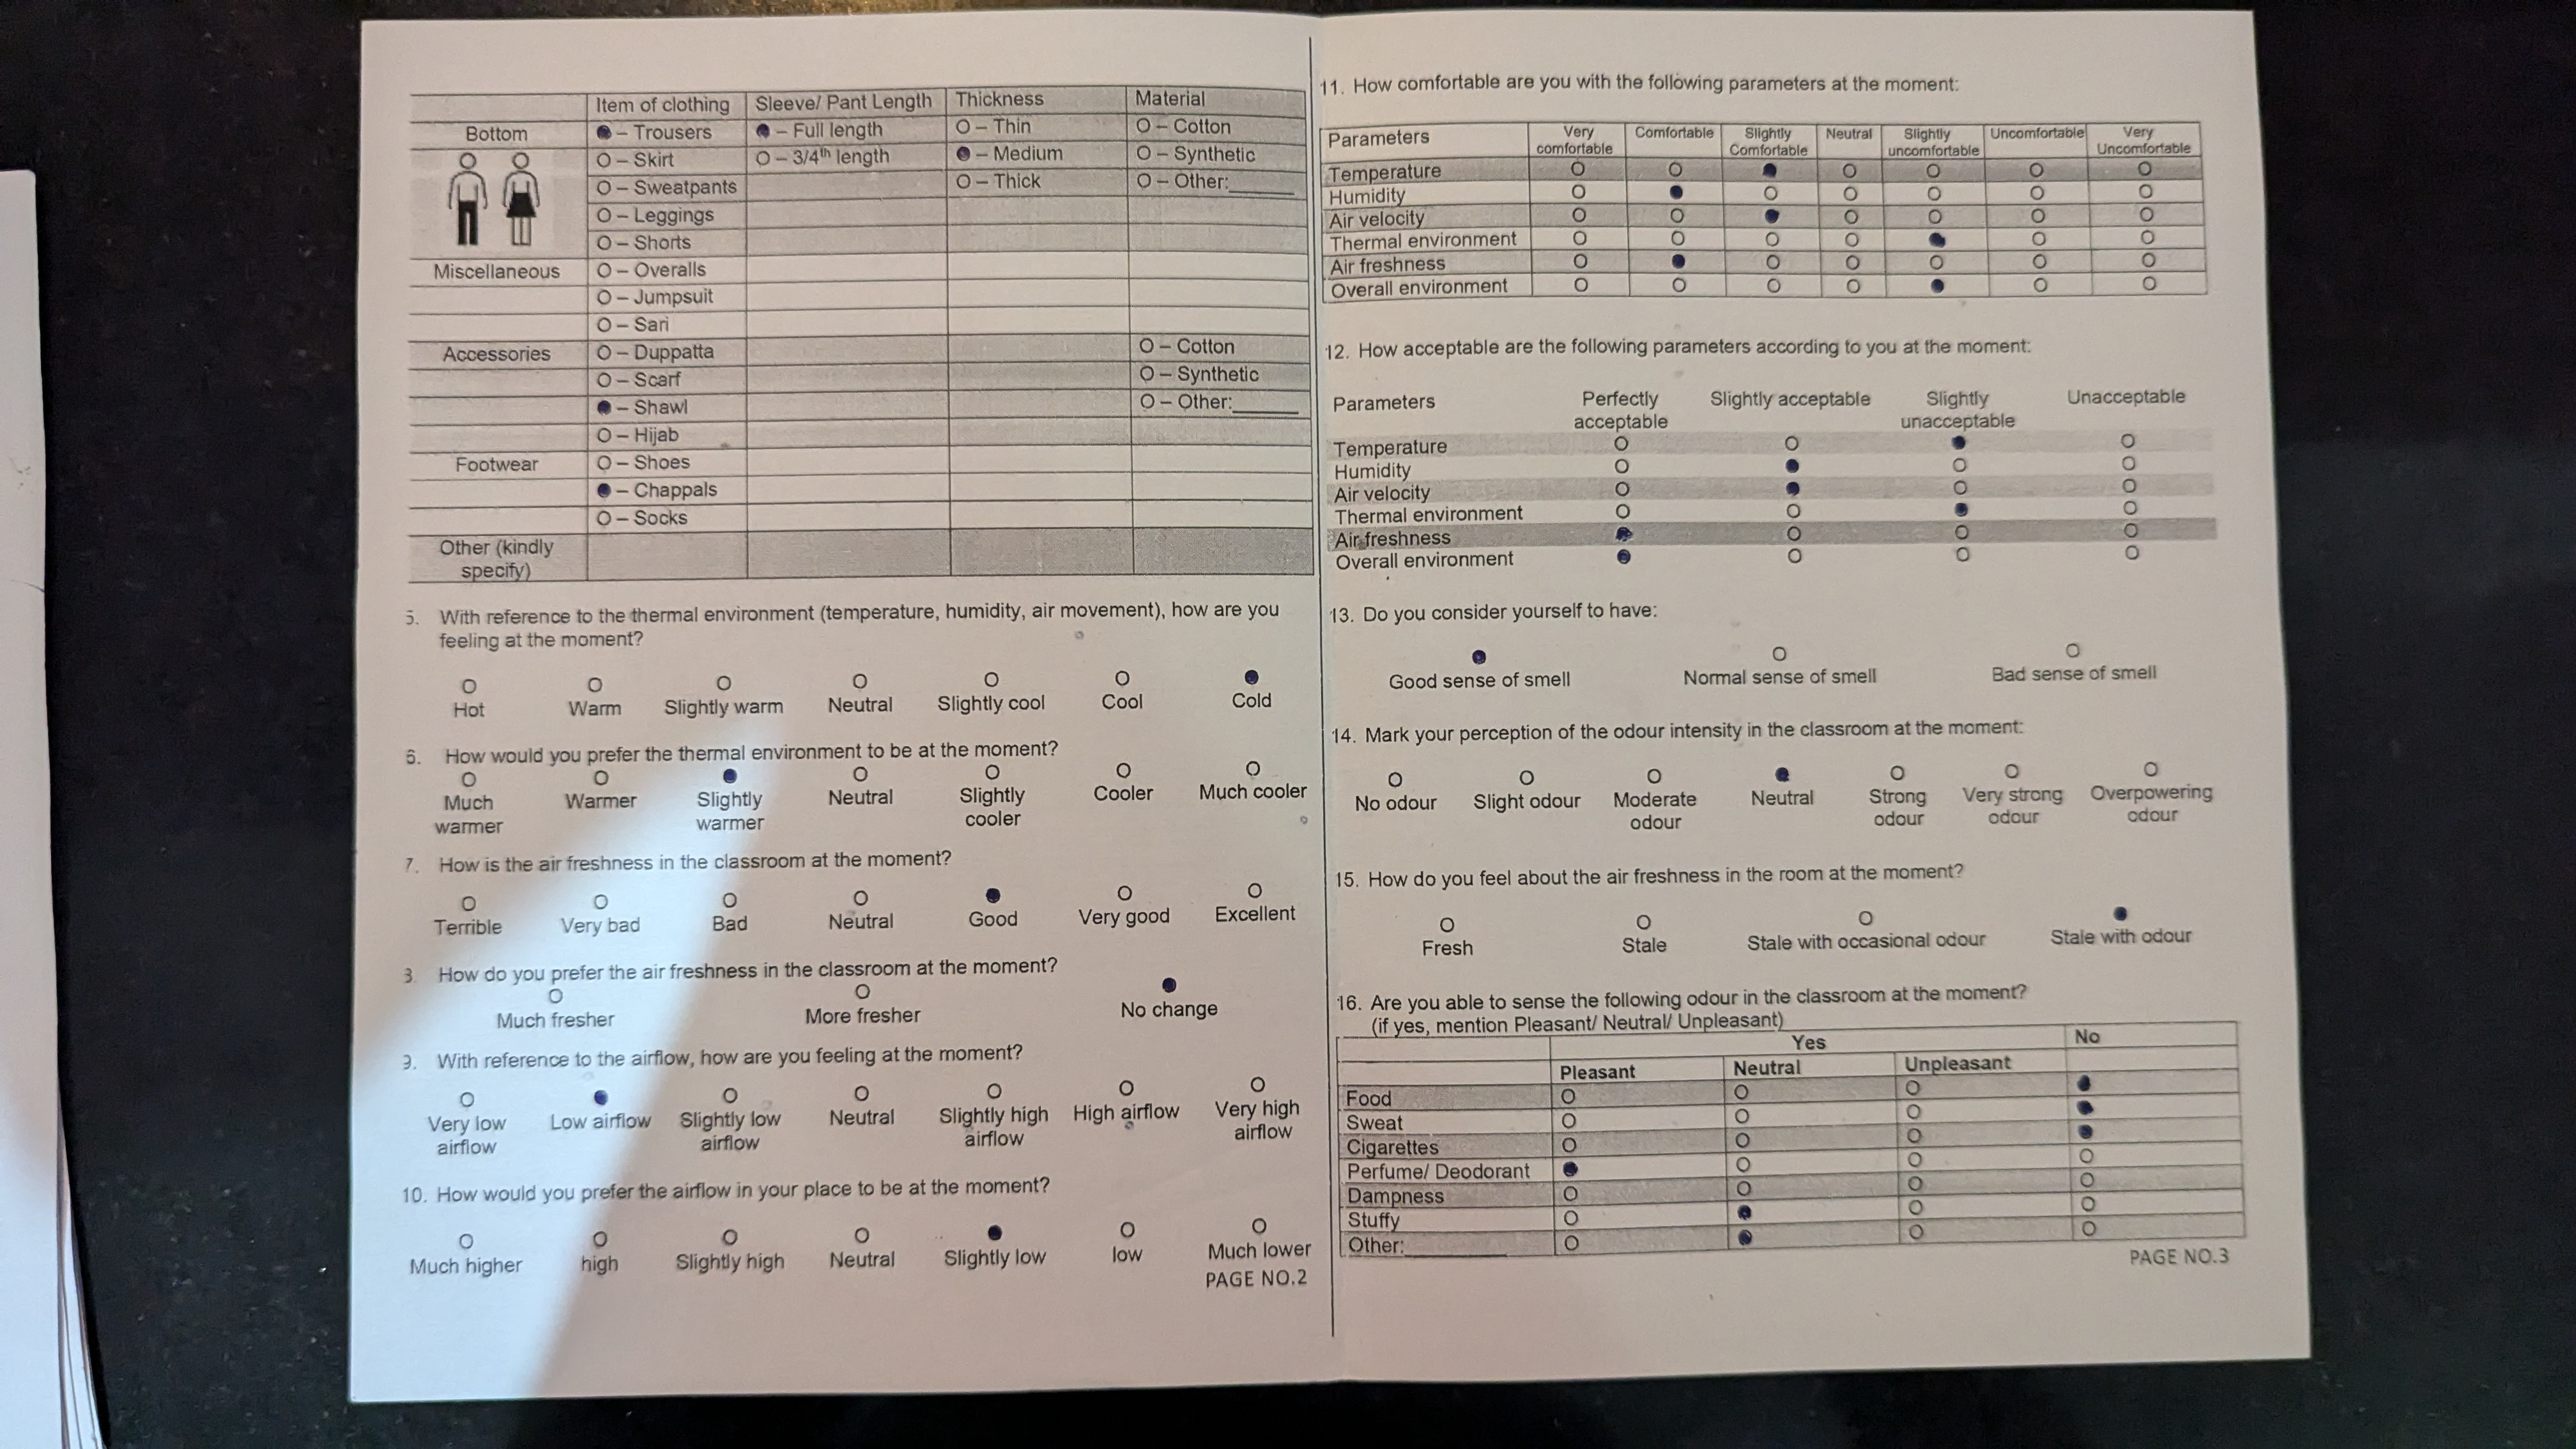 Item of clothing Sleeve/ Pant Length Thickness Material
Bottom ● – Trousers ● – Full length O – Thin O – Cotton
O – Skirt O – 3/4th length ● – Medium O – Synthetic
O – Sweatpants O – Thick O – Other:______
O – Leggings
O – Shorts
Miscellaneous O – Overalls
O – Jumpsuit
O – Sari
Accessories O – Duppatta O – Cotton
O – Scarf O – Synthetic
● – Shawl O – Other:______
O – Hijab
Footwear O – Shoes
● – Chappals
O – Socks
Other (kindly
specify)
5. With reference to the thermal environment (temperature, humidity, air movement), how are you
feeling at the moment?
O O O O O O ●
Hot Warm Slightly warm Neutral Slightly cool Cool Cold
6. How would you prefer the thermal environment to be at the moment?
O O ● O O O O
Much Warmer Slightly Neutral Slightly Cooler Much cooler
warmer warmer cooler
7. How is the air freshness in the classroom at the moment?
O O O O ● O O
Terrible Very bad Bad Neutral Good Very good Excellent
8. How do you prefer the air freshness in the classroom at the moment?
O O ●
Much fresher More fresher No change
9. With reference to the airflow, how are you feeling at the moment?
O ● O O O O O
Very low Low airflow Slightly low Neutral Slightly high High airflow Very high
airflow airflow airflow airflow
10. How would you prefer the airflow in your place to be at the moment?
O O O O ● O O
Much higher high Slightly high Neutral Slightly low low Much lower
PAGE NO.2
11. How comfortable are you with the following parameters at the moment:
Parameters Very Comfortable Slightly Neutral Slightly Uncomfortable Very
comfortable Comfortable uncomfortable Uncomfortable
Temperature O O ● O O O O
Humidity O ● O O O O O
Air velocity O O ● O O O O
Thermal environment O O O O ● O O
Air freshness O ● O O O O O
Overall environment O O O O ● O O
12. How acceptable are the following parameters according to you at the moment:
Parameters Perfectly Slightly acceptable Slightly Unacceptable
acceptable unacceptable
Temperature O O ● O
Humidity O ● O O
Air velocity O ● O O
Thermal environment O O ● O
Air freshness ● O O O
Overall environment ● O O O
13. Do you consider yourself to have:
● O O
Good sense of smell Normal sense of smell Bad sense of smell
14. Mark your perception of the odour intensity in the classroom at the moment:
O O O ● O O O
No odour Slight odour Moderate Neutral Strong Very strong Overpowering
odour odour odour odour
15. How do you feel about the air freshness in the room at the moment?
O O O ●
Fresh Stale Stale with occasional odour Stale with odour
16. Are you able to sense the following odour in the classroom at the moment?
(if yes, mention Pleasant/ Neutral/ Unpleasant)
Yes No
Pleasant Neutral Unpleasant
Food O O O ●
Sweat O O O ●
Cigarettes O O O ●
Perfume/ Deodorant ● O O O
Dampness O O O O
Stuffy O ● O O
Other:__________ O ● O O
PAGE NO.3